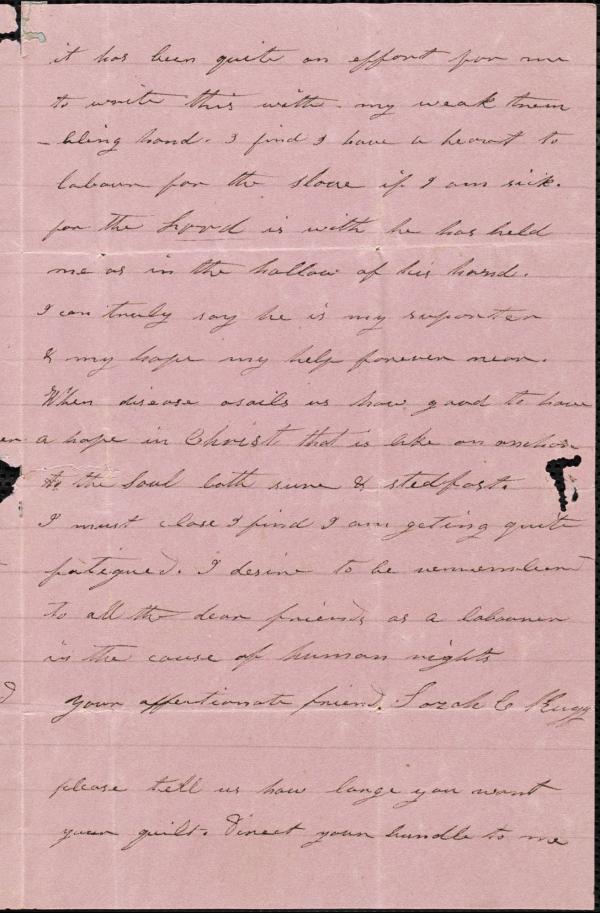 it has been quite an effort for me
to write this with my weak trem
-bling hand. I find I have a heart to
labour for the slave if I am sick.
for the Lord is with he has held
me as in the hollow of his hand.
I can truly say he is my suporter
& my hope my help forever near.
When disease asails us how good to have
a hope in Christ that is like an anchor
to the Soul both sure & stedfast.
I must close I find I am geting quite
fatigued. I desire to be remembered
to all the dear friends as a labourer
in the cause of human rights
your affectionate friend. Sarah C Rugg
please tell us how large you want
your quilt. Direct your bundle to me